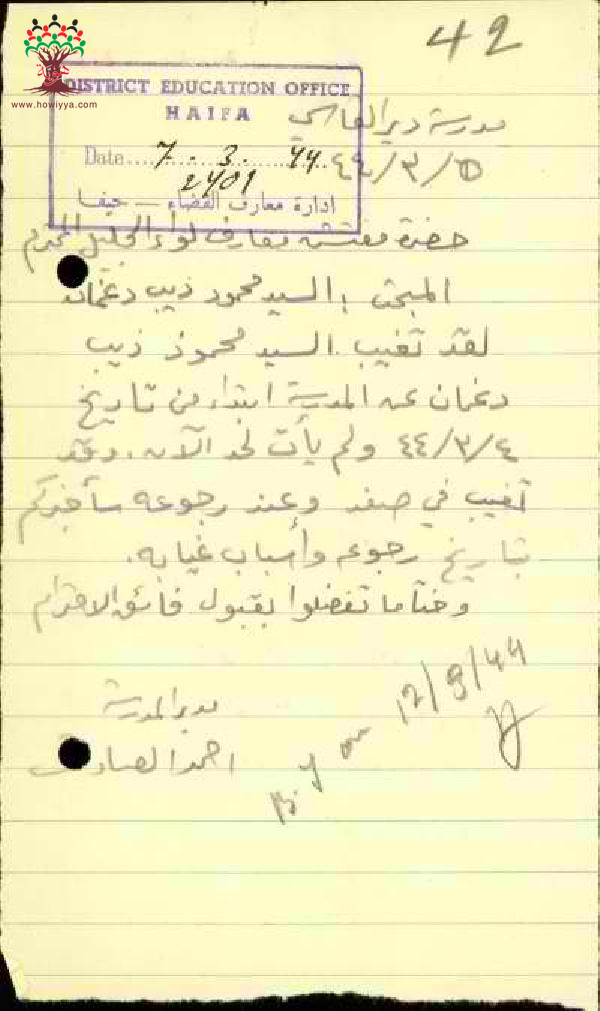 42
www.howiyya.com
DISTRICT EDUCATION OFFICE
HAIFA
Date.... 7. 3. 44
2401
ادارة معارف القضاء — حيفا
مدرسة دير القاسي
٤٤/٣/٥
حضرة مفتش معارف لواء الجليل المحترم
المبحث : السيد محمود ذيب دغمان
لقد تغيب السيد محمود ذيب
دغمان عن المدرسة ابتداء من تاريخ
٤٤/٣/٤ ولم يأت لحد الآن. وقد
تغيب في صفد وعند رجوعه سأخبركم
بتاريخ رجوعه وأسباب غيابه.
وختاما تفضلوا بقبول فائق الاحترام
مدير المدرسة
احمد الصادق
B. y on 12/9/44